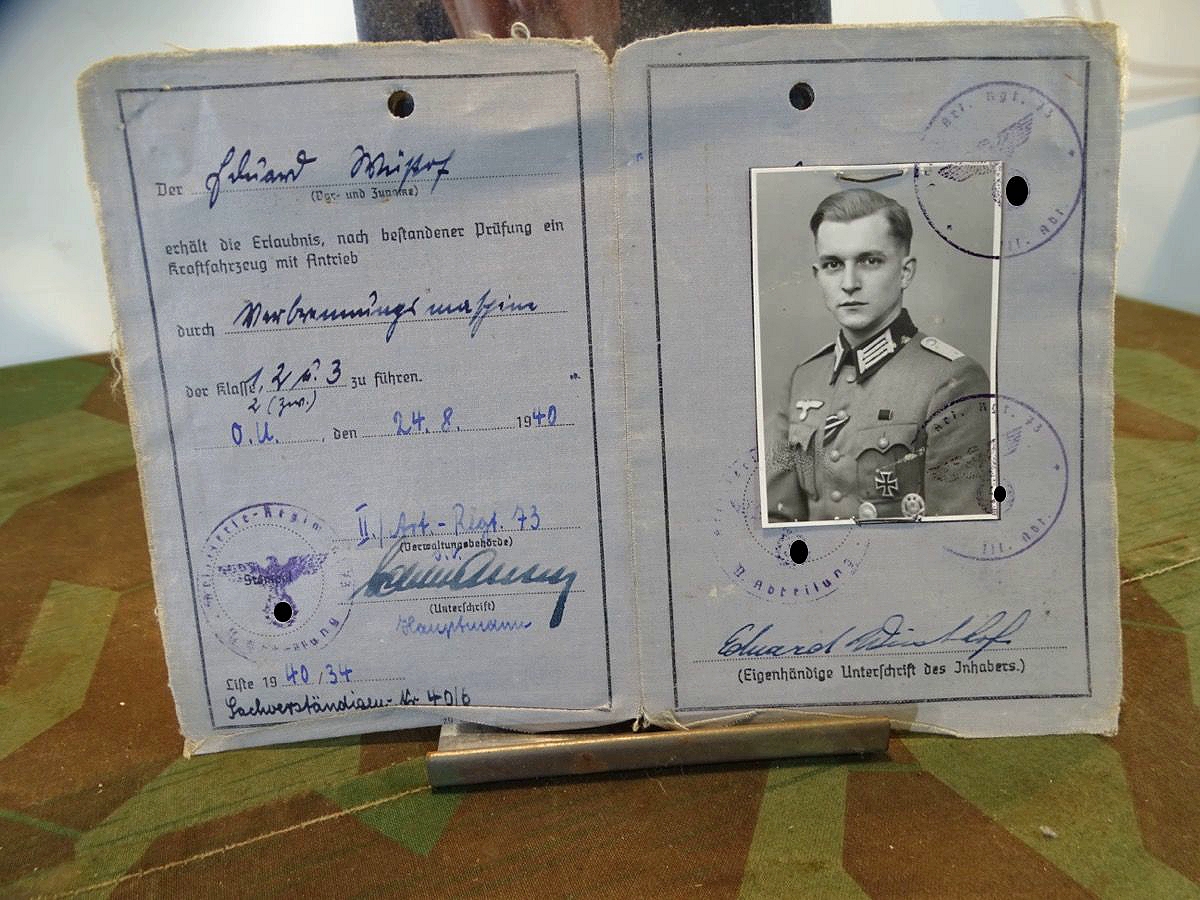 Der Eduard
(Vor- und Zuname)
erhält die Erlaubnis, nach bestandener Prüfung ein
Kraftfahrzeug mit Antrieb
durch Verbrennungsmaschine
der Klasse 1, 2 u. 3 zu führen.
2 (zw.)
O.U. , den 24. 8. 1940
II./Art.-Rgt. 73
(Verwaltungsbehörde)
(Unterschrift)
Hauptmann
Liste 19 40/34
Sachverständigen-Nr 40/6
Artillerie-Regim
Stempel
II. Abteilung
Art. Rgt. 73
III. Abt.
Art. Rgt. 73
III. Abt.
II Abteilung
Eduard
(Eigenhändige Unterschrift des Inhabers.)